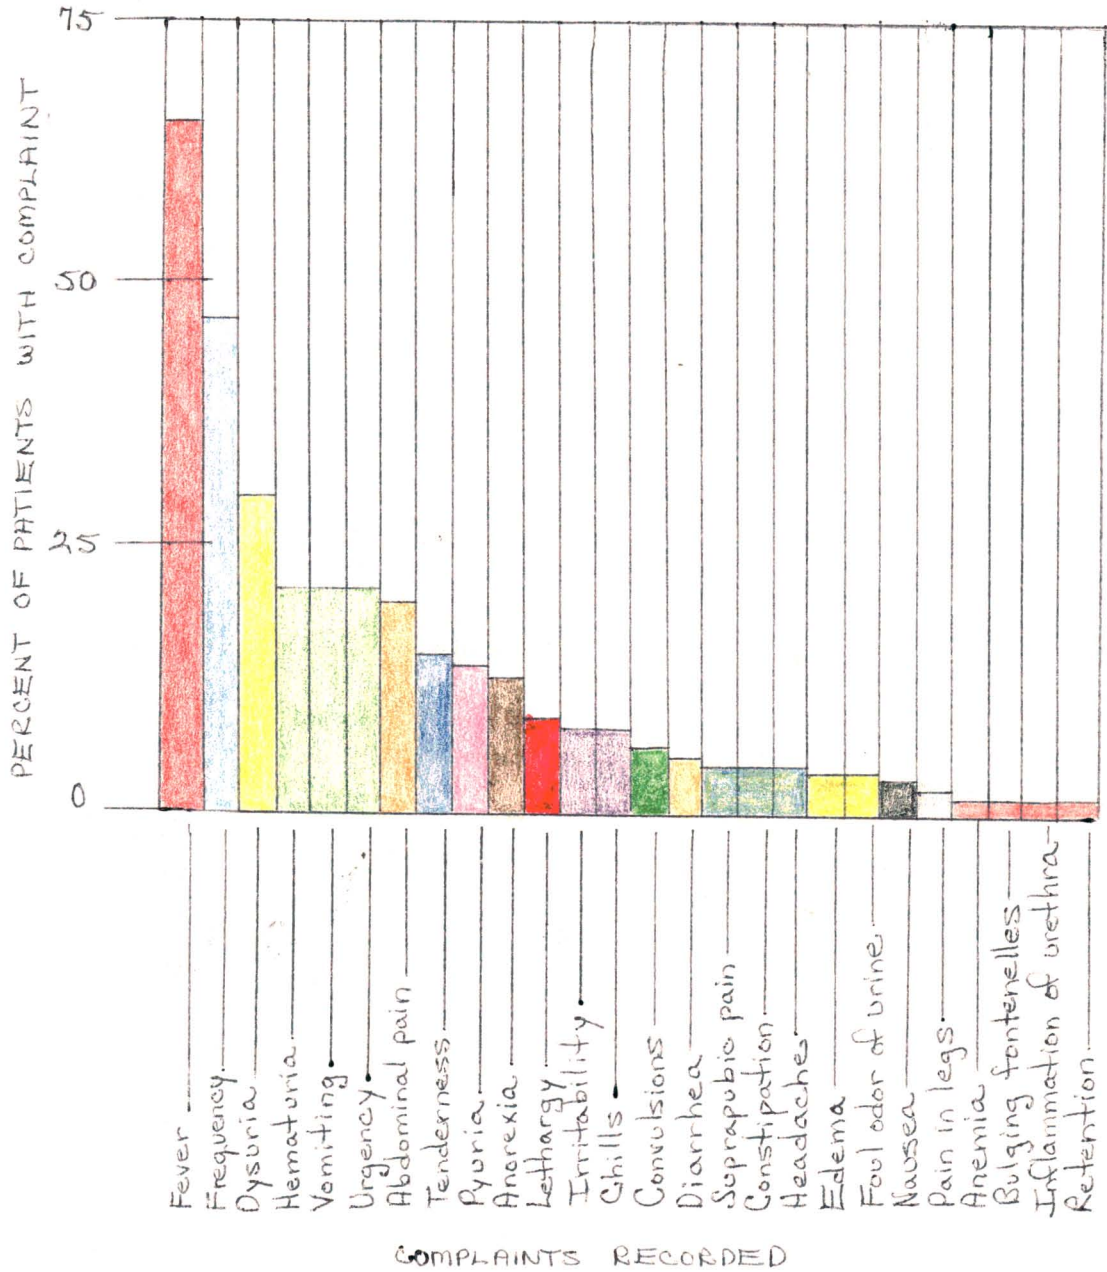 75
50
25
0
PERCENT OF PATIENTS WITH COMPLAINT
Fever
Frequency
Dysuria
Hematuria
Vomiting
Urgency
Abdominal pain
Tenderness
Pyuria
Anorexia
Lethargy
Irritability
Chills
Convulsions
Diarrhea
Suprapubic pain
Constipation
Headache
Edema
Foul odor of urine
Nausea
Pain in legs
Anemia
Bulging fontenelles
Inflammation of urethra
Retention
COMPLAINTS RECORDED